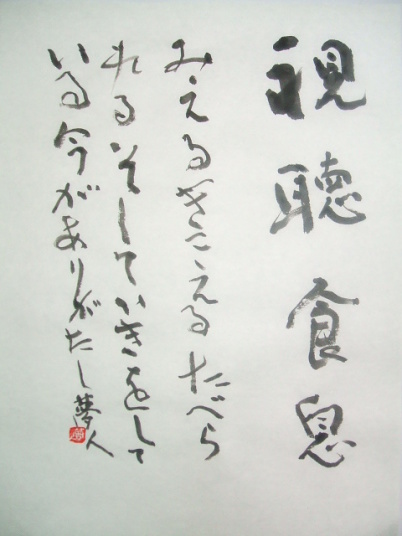 視聴食息
みえるがきこえるたべら
れるそしていきをして
いる今がありがたし
夢人